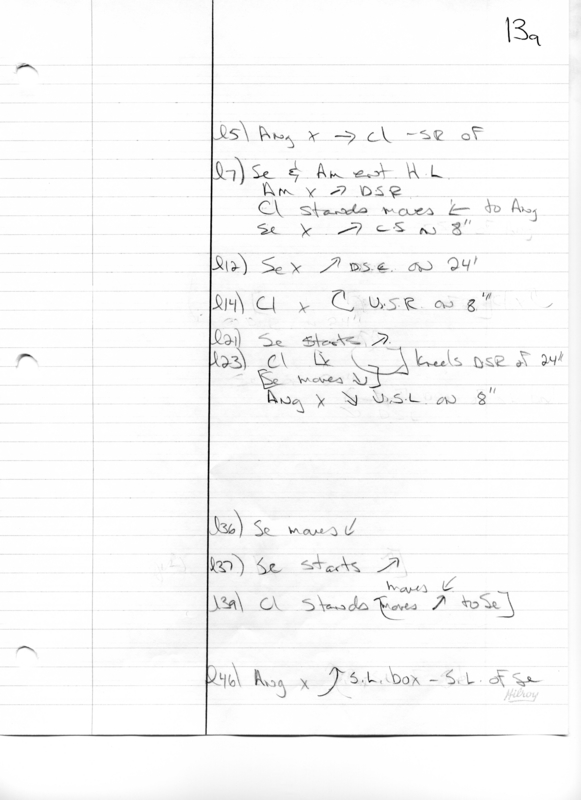 13a
l5) Ang x → Cl - SR of
l7) Se & Am ent. H.L.
Am x ↗ DSR
Cl stands moves ← to Ang
Se x ↗ CS on 8"
l12) Se x ↗ D.S.C. on 24'
l14) Cl x U.S.R. on 8"
l21) Se starts ↗
l23) Cl x kneels DSR of 24"
[Se moves ↓]
Ang x ↘ U.S.L on 8"
l36) Se moves ↙
l37) Se starts ↗
moves ↙
l39) Cl stands [moves ↗ to Se]
l46) Ang x ⤴ S.L. box - S.L. of Se
Hilroy